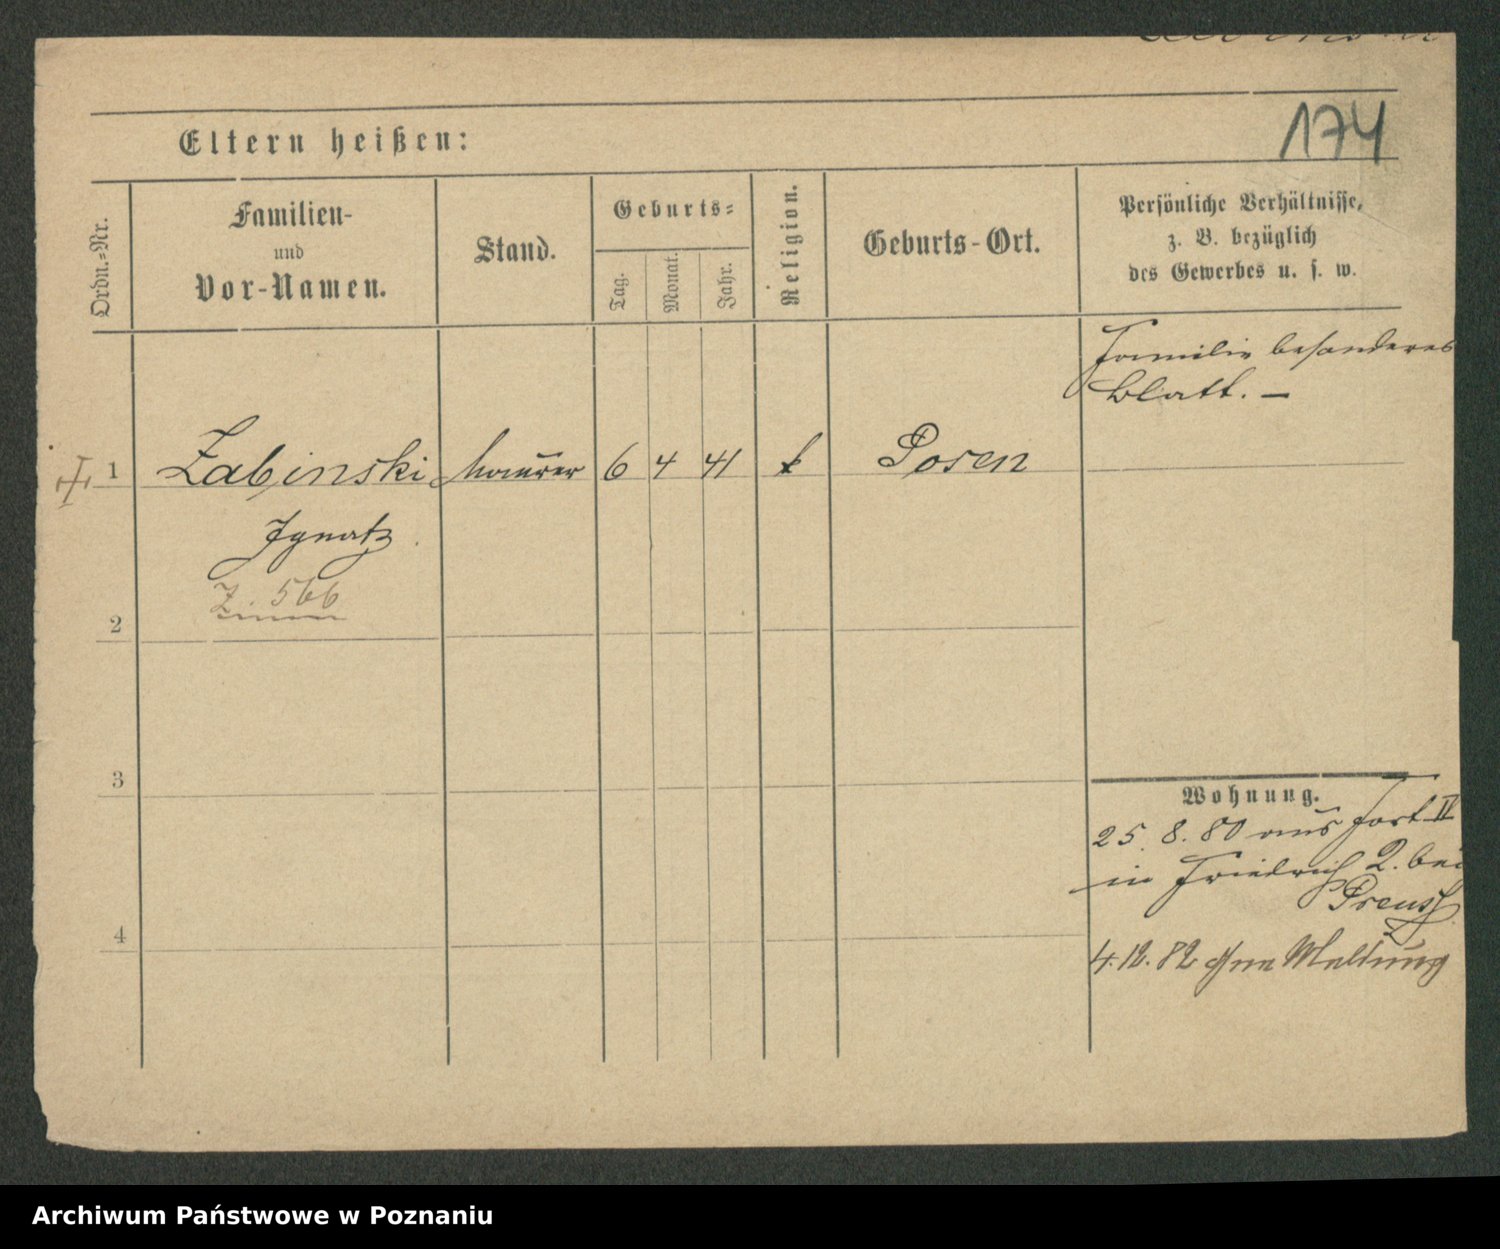 174
Eltern heißen:
Ordn.-Nr.
Familien-
und
Vor-Namen.
Stand.
Geburts-
Tag.
Monat.
Jahr.
Religion.
Geburts-Ort.
Persönliche Verhältnisse,
z. B. bezüglich
des Gewerbes u. s. w.
Familie besonderes
Blatt. —
1 Zabinski Maurer 6 4 41 k Posen
Ignatz
Z. 566
2
3
Wohnung.
25. 8. 80 aus Fort IV
in Friedrich 2. bei
Preuss
4
4.12.82 ohne Meldung
Archiwum Państwowe w Poznaniu